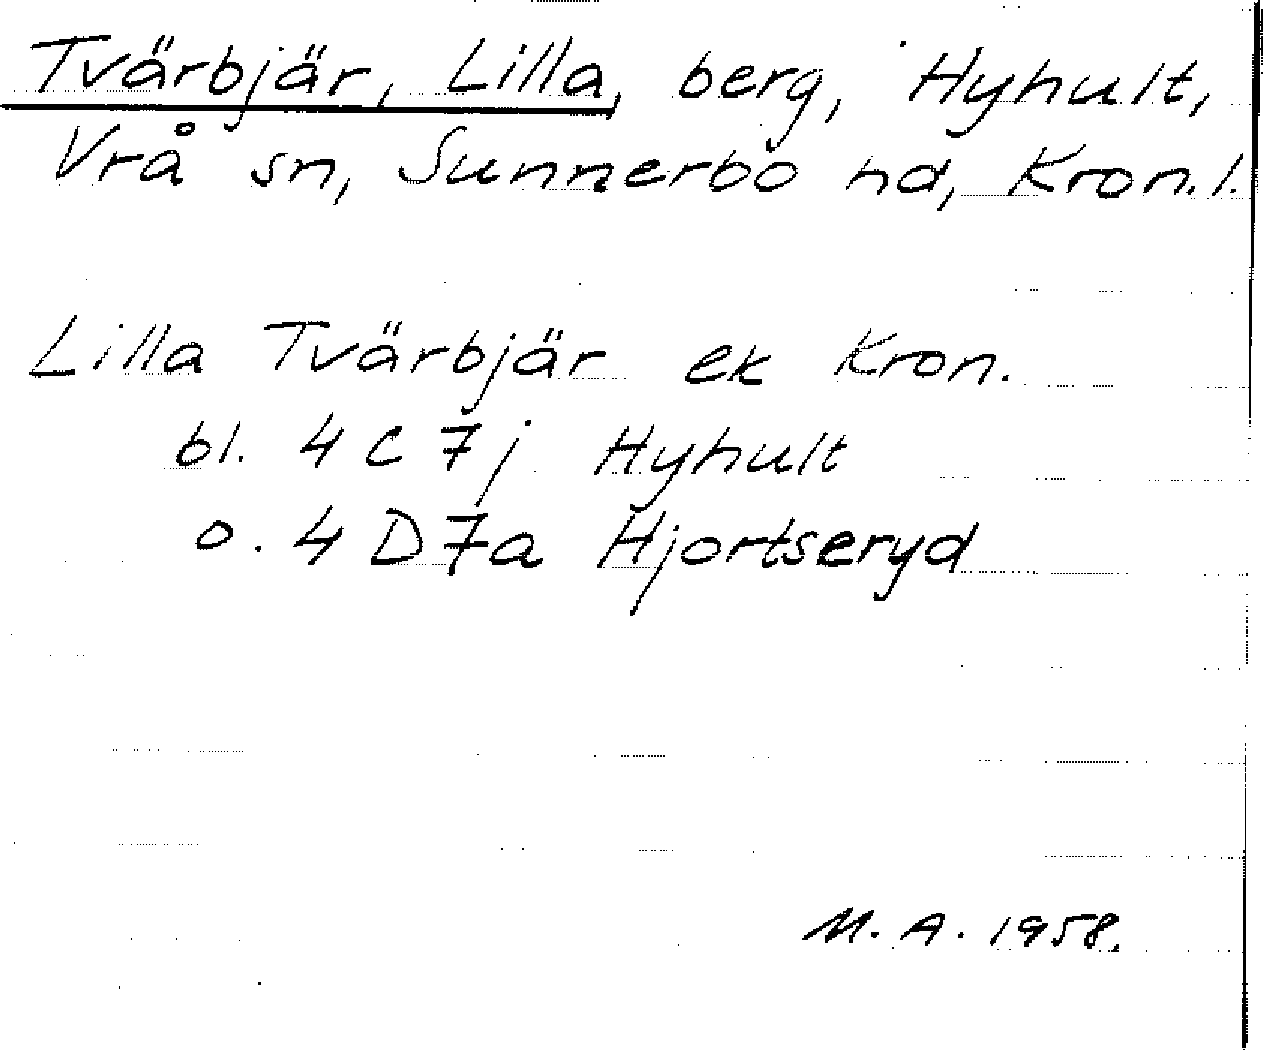 Tvärbjär, Lilla, berg, Hyhult,
Vrå sn, Sunnerbo hd, Kron.l.
Lilla Tvärbjär ek Kron.
bl. 4 C 7 j Hyhult
o. 4 D 7a Hjortseryd
M. A. 1958.